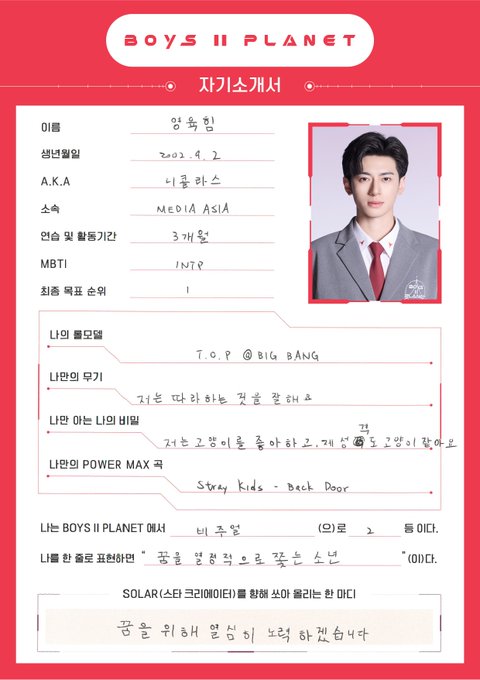 BOYS II PLANET
자기소개서
이름 영육힘
생년월일 2002.9.2
A.K.A 니콜라스
소속 MEDIA ASIA
연습 및 활동기간 3개월
MBTI INTP
최종 목표 순위 1
BOYS II PLANET
나의 롤모델
T.O.P @BIG BANG
나만의 무기
저는 따라하는 것을 잘해요
나만 아는 나의 비밀
저는 고양이를 좋아하고, 제 성격도 고양이 같아요
나만의 POWER MAX 곡
Stray Kids - Back Door
나는 BOYS II PLANET 에서 비주얼 (으)로 2 등 이다.
나를 한 줄로 표현하면 " 꿈을 열정적으로 쫓는 소년 " (이)다.
SOLAR(스타 크리에이터)를 향해 쏘아 올리는 한 마디
꿈을 위해 열심히 노력하겠습니다